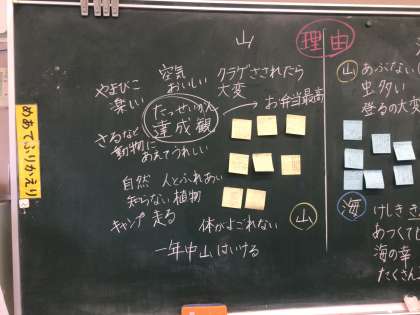 めあて ふりかえり
山
理由
やまびこ
楽しい
空気
おいしい
クラゲさされたら
大変
たっせいかん
達成観
お弁当最高
さるなど
動物に
あえてうれしい
自然 人とふれあい
知らない植物
キャンプ 走る
体がよごれない
山
一年中山はいける
山
あぶない
虫多い
登るの大変
海
けしき
あつくて
海の幸
たくさん